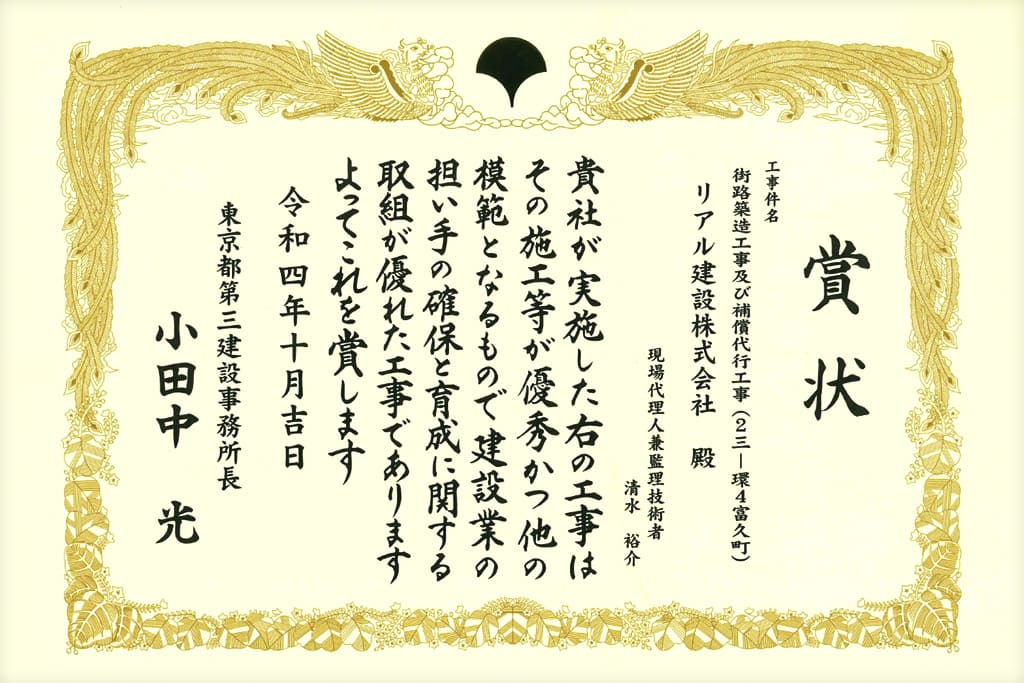 賞状
工事件名
街路築造工事及び補償代行工事（２３－環４富久町）
リアル建設株式会社 殿
現場代理人兼監理技術者
清水 裕介
貴社が実施した右の工事は
その施工等が優秀かつ他の
模範となるもので建設業の
担い手の確保と育成に関する
取組が優れた工事であります
よってこれを賞します
令和四年十月吉日
東京都第三建設事務所長
小田中 光